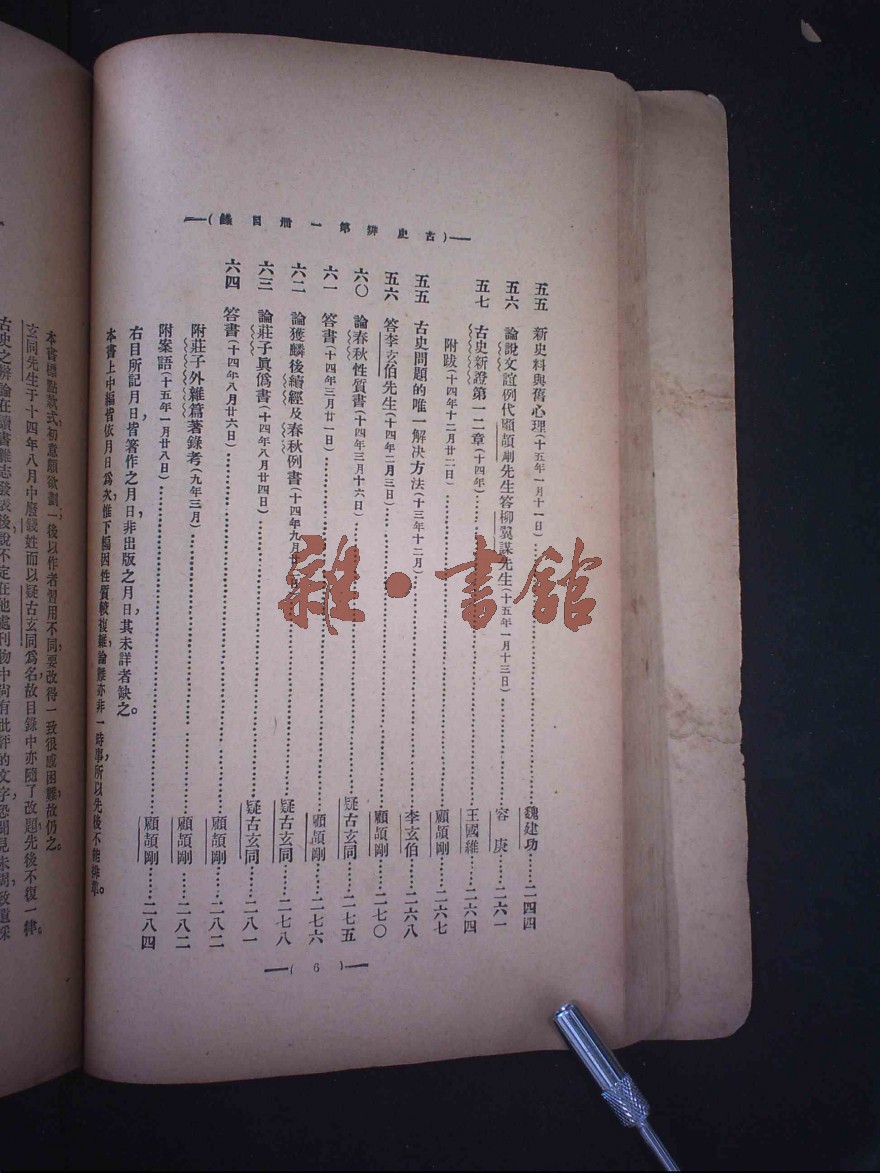 (古史辨第一冊目錄)
五五 新史料與舊心理(十五年一月十一日)……魏建功……二四四
五六 論說文誼例代顧頡剛先生答柳翼謀先生(十五年一月十三日)……容庚……二六一
五七 古史新證第一二章(十四年)……王國維……二六四
附跋(十四年十二月廿二日)……顧頡剛……二六七
五五 古史問題的唯一解决方法(十三年十二月)……李玄伯……二六八
五六 答李玄伯先生(十四年二月三日)……顧頡剛……二七〇
六〇 論春秋性質書(十四年三月十六日)……疑古玄同……二七五
六一 答書(十四年三月廿一日)……顧頡剛……二七六
六二 論獲麟後續經及春秋例書(十四年九月廿二日)……疑古玄同……二七八
六三 論莊子眞僞書(十四年八月廿四日)……疑古玄同……二八一
六四 答書(十四年八月廿六日)……顧頡剛……二八二
附莊子外雜篇著錄考(九年三月)……顧頡剛……二八二
附案語(十五年一月廿八日)……顧頡剛……二八四
右目所記月日皆箸作之月日,非出版之月日,其未詳者缺之。
本書上中編皆依月日爲次,惟下編因性質較複雜,論難亦非一時事,所以先後不能排準。
(6)
本書標點款式,初意頗欲劃一;後以作者習用不同,要改得一致很感困難,故仍之。
玄同先生于十四年八月中廢錢姓而以疑古玄同爲名,故目錄中亦隨了改題,先後不復一律。
古史之辨論在讀書雜志發表後,說不定在他處刊物中尚有批評的文字,恐聞見未周,致遺採
雜·書館